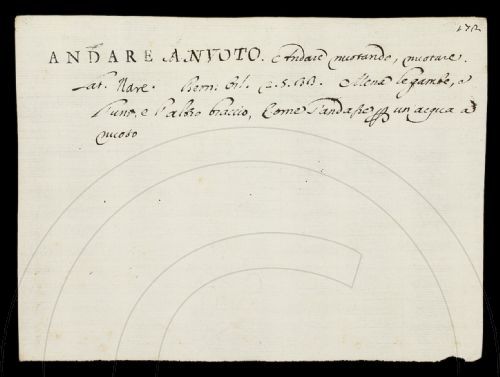 172
ANDARE A NVOTO. è Andare nuotando, nuotare.
Lat. Nare. Bern. Orl. 2. 5. Mena le gambe, e
l'uno, e l'altro braccio, Come s'andasse un acqua a
nuoto